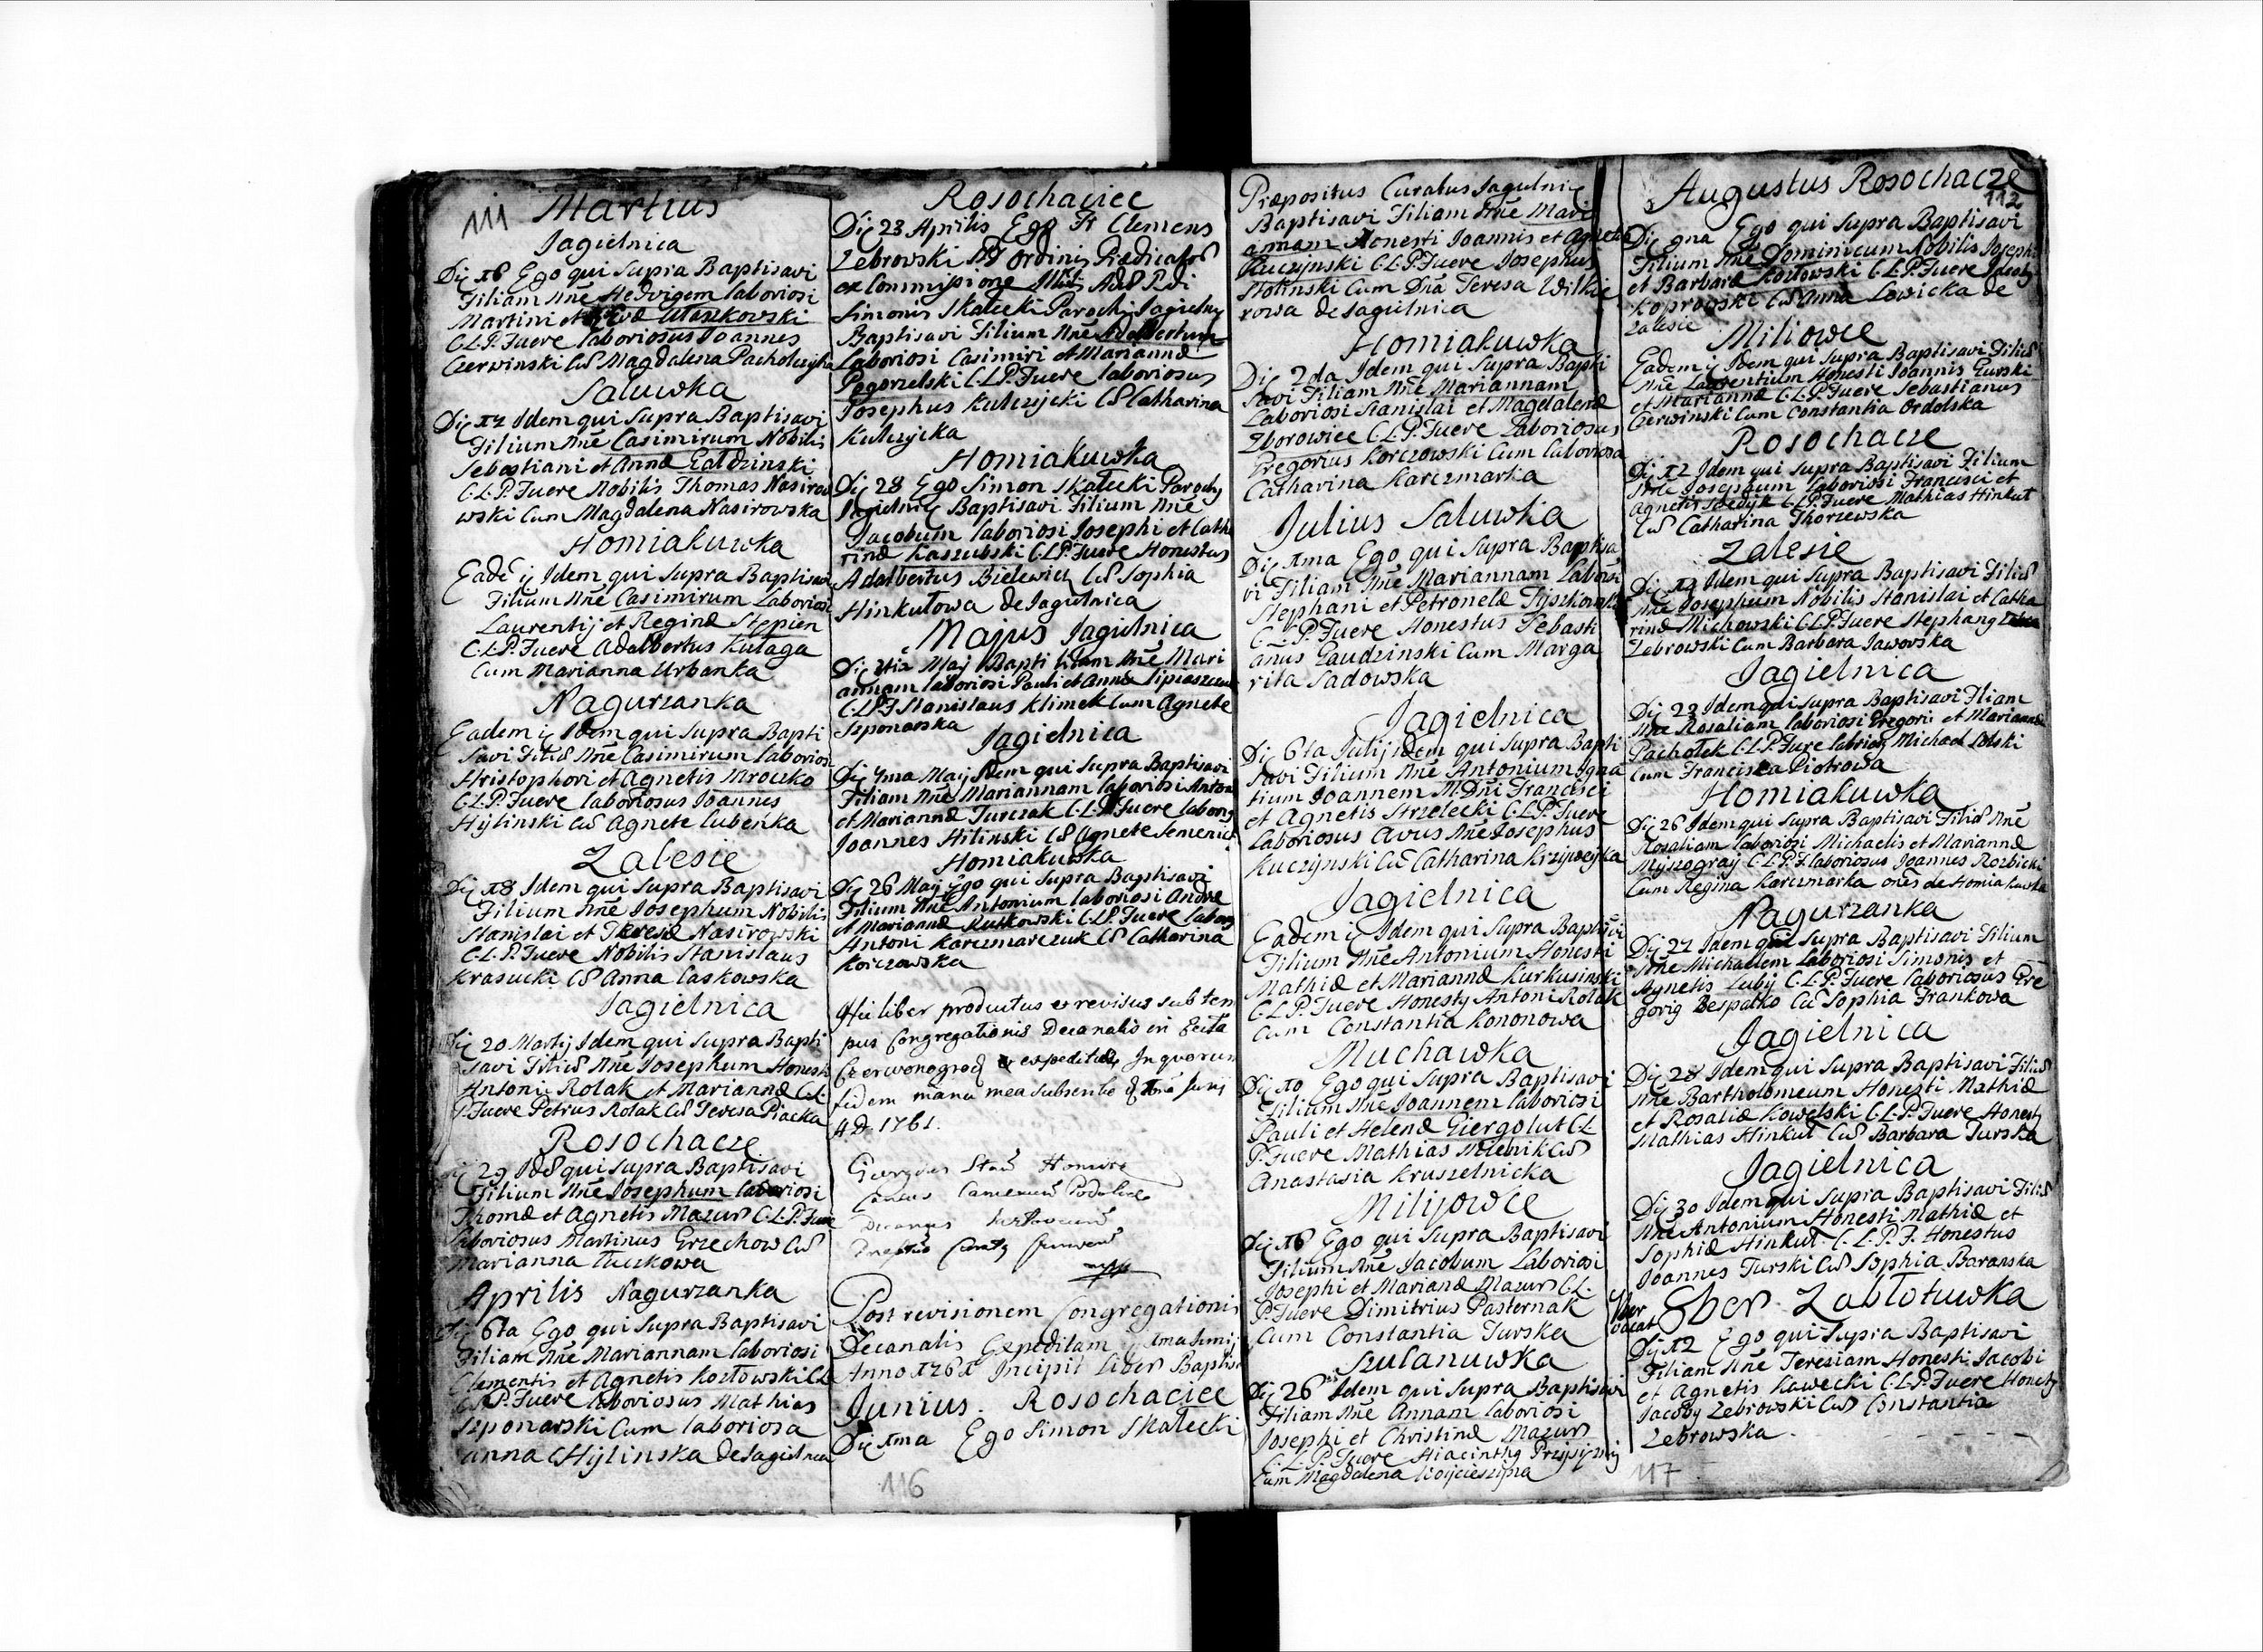 111 Martius
Jagielnica
Die 16 Ego qui Supra Baptisavi
Filiam Nne Hedvigem laboriosi
Martini et Evæ Utaszkowski
C.L.P. Fuere laboriosus Joannes
Czerwinski cũ Magdalena
Saluwka
Die 17 Idem qui Supra Baptisavi
Filium Nne Casimirum Nobilis
Sebastiani et Annæ
C.L.P. Fuere Nobilis Thomas Nasiro
wski Cum Magdalena Nasirowska
Homiakuwka
Eadẽ ij Idem qui Supra Baptisavi
Filium Nne Casimirum Laboriosi
Laurentij et Reginæ Stepien
C.L.P. Fuere Adalbertus Kutaga
Cum Marianna Urbanka
Nagurzanka
Eadem ij Idem qui Supra Bapti
savi Filiũ Nne Casimirum laboriosi
Hristophori et Agnetis Mroczko
C.L.P. Fuere laboriosus Joannes
Hylinski cũ Agnete Lubeńka
Zalesie
Die 18 Idem qui Supra Baptisavi
Filium Nne Josephum Nobilis
Stanislai et Theresæ Nasirowski
C.L.P. Fuere Nobilis Stanislaus
Krasucki cũ Anna Laskowska
Jagielnica
Die 20 Martij Idem qui Supra Bapti
savi Filiũ Nne Josephum Honesti
Antonii Rolak et Mariannæ C.L.
P. Fuere Petrus Rolak cũ Teresa Piacka
Rosochacze
Die 29 Idẽ qui Supra Baptisavi
Filium Nne Josephum laboriosi
Thomæ et Agnetis Mazur C.L.P. Fuere
laboriosus Martinus Grzechow cũ
Marianna Tuczkowa
Aprilis Nagurzanka
Die 6ta Ego qui Supra Baptisavi
Filiam Nne Mariannam laboriosi
Clementis et Agnetis Kozłowski C.L.
P. Fuere laboriosus Mathias
Szponarski Cum laboriosa
Anna Hylinska de Jagielnica
Rosochaciec
Die 23 Aprilis Ego Fr Clemens
Zebrowski Ordinis Prædicatorũ
ex Commissione Adũ Rdi
Simonis Skałecki Parochi Jagielny
Baptisavi Filium Nne Adalbertum
Laboriosi Casimiri et Mariannæ
Pogorzelski C.L.P. Fuere laboriosus
Josephus Kulczycki cũ Catharina
Kulczycka
Homiakuwka
Die 28 Ego Simon Skałecki Parochy
Jagielnicę Baptisavi Filium Nne
Jacobum laboriosi Josephi et Catha
rinæ Kaszubski C.L.P. Fuere Honestus
Adalbertus Bielewicz cũ Sophia
Hinkutowa de Jagielnica
Majus Jagielnica
Die Maj Bapti Nne Mari
annam laboriosi Pauli et Annæ
C.L.P.F. Stanislaus Klimek Cum Agnete
Szponarska
Jagielnica
Die Maij Idem qui Supra Baptisavi
Filiam Nne Mariannam laboriosi Antoni
et Mariannæ Turczak C.L.P. Fuere
Joannes Hilinski cũ Agnete
Homiakuwka
Die 26 Maij Ego qui Supra Baptisavi
Filium Nne Antonium laboriosi Andre
et Mariannæ Rutkowski C.L.P. Fuere
Antoni Karczmarczuk cũ Catharina
Korczowska
Hic liber productus et revisus sub tem
pus Congregationis Decanalis in
Czerwonogrod expeditæ, In quorum
fidem manu mea subscribo Junij
A.D. 1761.
Post revisionem Congregationis
Decanalis Expeditam 1ma Junij
Anno 1761 Incipit Liber Baptis
Junius. Rosochaciec
Die 1ma Ego Simon Skałecki
116
Præpositus Curatus Jagielnicę
Baptisavi Filiam Nne Mari
annam Honesti Joannis et Agnetis
Kuczynski C.L.P. Fuere Josephus
Stolinski Cum Dna Teresa Wilkie
rowa de Jagielnica
Homiakuwka
Die 2da Idem qui Supra Bapti
savi Filiam Nne Mariannam
Laboriosi Stanislai et Magdalenæ
Zborowiec C.L.P. Fuere Laboriosus
Gregorius Korczowski Cum laboriosa
Catharina Karczmarka
Julius Saluwka
Die 1ma Ego qui Supra Baptisa
vi Filiam Nne Mariannam Labori
Stephani et Petronelæ Tyszkowski
C.L.P. Fuere Honestus Sebasti
anus Gaudzinski Cum Marga
rita Sadowska
Jagielnica
Die 6ta Julij Idem qui Supra Bapti
savi Filium Nne Antonium Igna
tium Joannem M. Dni Francisci
et Agnetis Strzelecki C.L.P. Fuere
Laboriosus Avus Nne Josephus
Kuczynski cũ Catharina
Jagielnica
Eadem ij Idem qui Supra Baptisavi
Filium Nne Antonium Honesti
Mathiæ et Mariannæ Kurkusinski
C.L.P. Fuere Honesty Antoni Rolak
Cum Constantia Kononowa
Muchawka
Die 10 Ego qui Supra Baptisavi
Filium Nne Joannem laboriosi
Pauli et Helenæ Giergolut C.L.
P. Fuere Mathias Mielnik cũ
Anastasia Kruszelnicka
Milijowce
Die 16 Ego qui Supra Baptisavi
Filium Nne Jacobum Laboriosi
Josephi et Marianæ Mazur C.L.
P. Fuere Dimitrius Pasternak
Cum Constantia Turska
Szulanuwka
Die 26 Idem qui Supra Baptisavi
Filiam Nne Annam laboriosi
Josephi et Christinæ Mazur
C.L.P. Fuere Hiacinthy
Cum Magdalena
Augustus Rosochacze
112
Die 9na Ego qui Supra Baptisavi
Filium Nne Dominicum Nobilis Josephi
et Barbaræ Kozłowski C.L.P. Fuere
Koprowski cũ Anna Lowicka de
Zalesie
Miliowce
Eadem ij Idem qui Supra Baptisavi Filiũ
Nne Laurentium Honesti Joannis Gurski
et Mariannæ C.L.P. Fuere Sebastianus
Czerwinski Cum Constantia Ordolska
Rosochacze
Die 12 Idem qui Supra Baptisavi Filium
Nne Josephum laboriosi Francisci et
Agnetis C.L.P. Fuere Mathias Hinkut
cũ Catharina Thorzewska
Zalesie
Die Idem qui Supra Baptisavi Filiũ
Nne Josephum Nobilis Stanislai et Catha
rinæ Michowski C.L.P. Fuere Stephany
Zebrowski Cum Barbara Jaworska
Jagielnica
Die 23 Idem qui Supra Baptisavi Filiam
Nne Rosaliam laboriosi Gregorii et Mariannæ
Pachołek C.L.P. Fuere Michael Solski
Cum Francisca Piotrowa
Homiakuwka
Die 26 Idem qui Supra Baptisavi Filiã Nne
Rosaliam laboriosi Michaelis et Mariannæ
C.L.P.F. laboriosus Joannes Rozbicki
Cum Regina Karczmarka oẽs de Homiakuwka
Nagurzanka
Die 27 Idem qui Supra Baptisavi Filium
Nne Michaelem Laboriosi Simonis et
Agnetis Luby C.L.P. Fuere laboriosus Gre
gorig Bespałko cũ Sophia Frankowa
Jagielnica
Die 28 Idem qui Supra Baptisavi Filiũ
Nne Bartholomeum Honesti Mathiæ
et Rosaliæ Kowelski C.L.P. Fuere Honesty
Mathias Hinkut cũ Barbara Turska
Jagielnica
Die 30 Idem qui Supra Baptisavi Filiũ
Nne Antonium Honesti Mathiæ et
Sophiæ Hinkut C.L.P.F. Honestus
Joannes Turski cũ Sophia Baranska
vacat 8ber Zabłotuwka
Die 12 Ego qui Supra Baptisavi
Filiam Nne Teresiam Honesti Jacobi
et Agnetis Kawecki C.L.P. Fuere Honesty
Jacoby Zebrowski cũ Constantia
Zebrowska
117